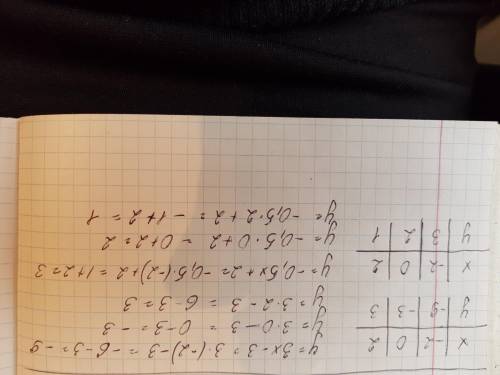 x | -2 | 0 | 2
y | -9 | -3 | 3
x | -2 | 0 | 2
y | 3 | 2 | 1
y=3x-3=3·(-2)-3=-6-3=-9
y=3·0-3=0-3=-3
y=3·2-3=6-3=3
y=-0,5x+2=-0,5·(-2)+2=1+2=3
y=-0,5·0+2=0+2=2
y=-0,5·2+2=-1+2=1